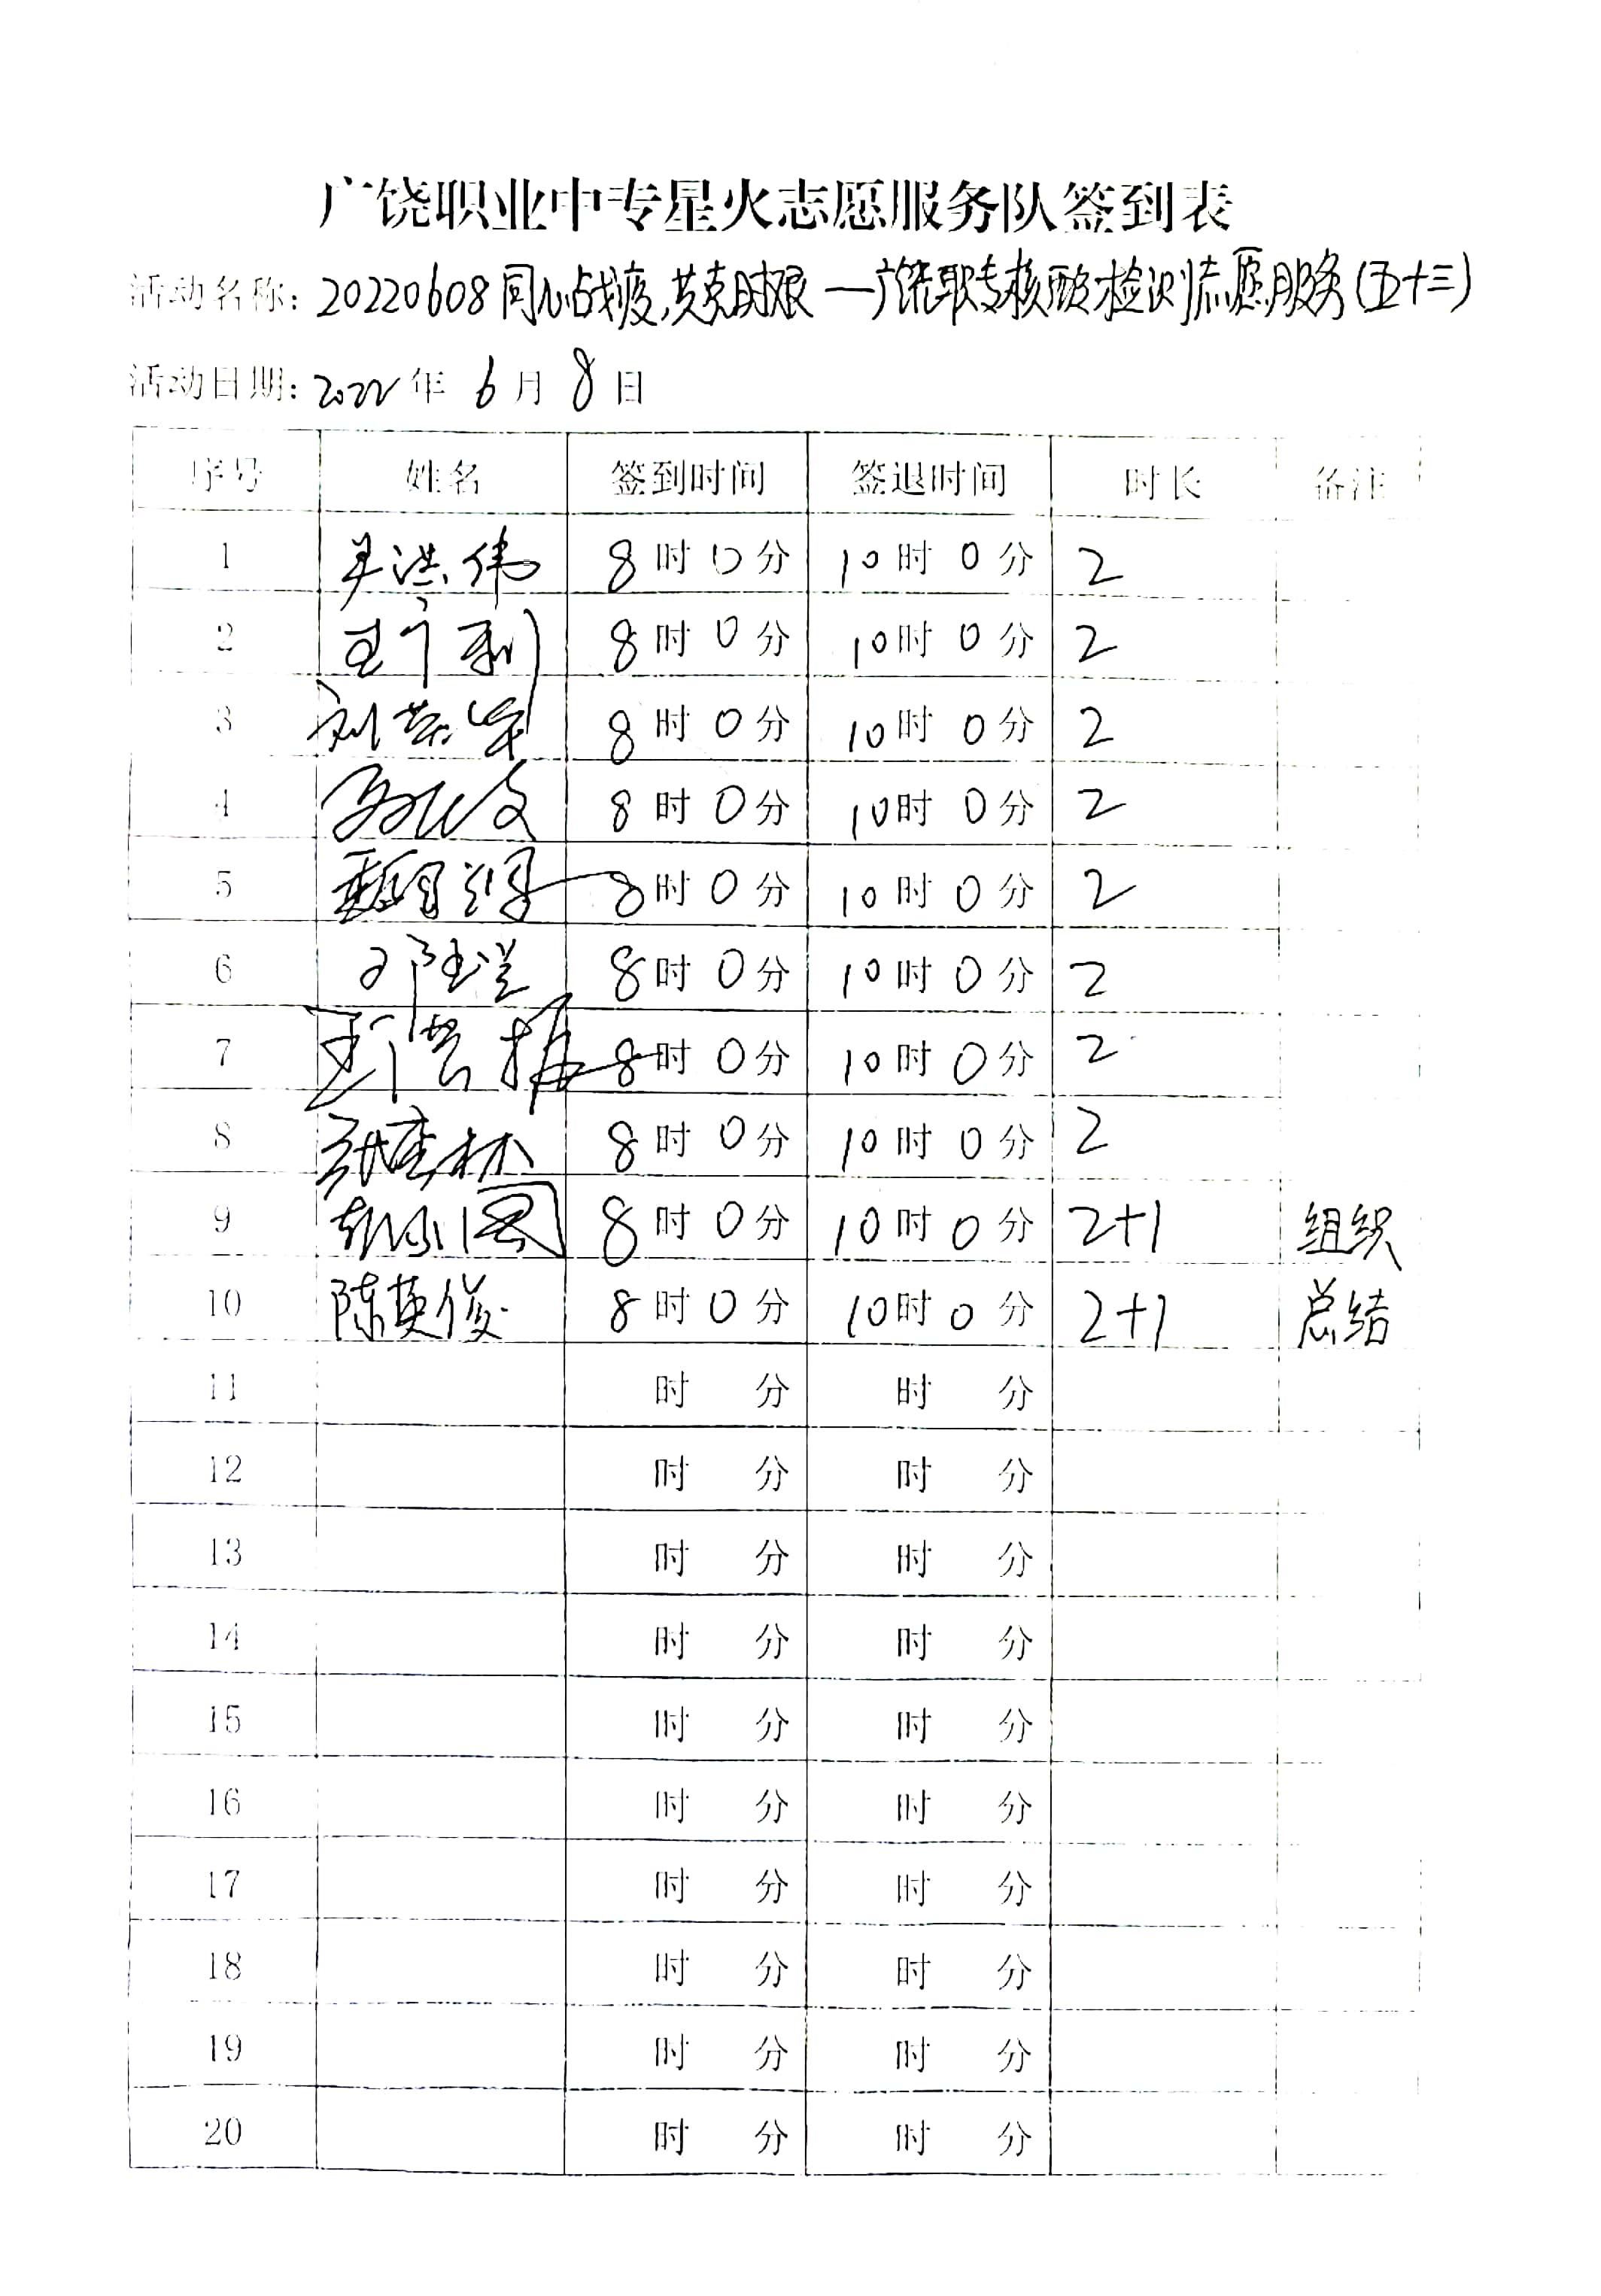 广饶职业中专星火志愿服务队签到表
活动名称: 20220608同心战疫,共克时艰—广饶职专核酸检测志愿服务(五十三)
活动日期: 2022年 6月 8日
序号 姓名 签到时间 签退时间 时长 备注
1 尹洪伟 8时0分 10时0分 2
2 8时0分 10时0分 2
3 刘荣华 8时0分 10时0分 2
4 8时0分 10时0分 2
5 8时0分 10时0分 2
6 8时0分 10时0分 2
7 8时0分 10时0分 2
8 8时0分 10时0分 2
9 8时0分 10时0分 2+1 组织
10 陈英俊 8时0分 10时0分 2+1 总结
11 时 分 时 分
12 时 分 时 分
13 时 分 时 分
14 时 分 时 分
15 时 分 时 分
16 时 分 时 分
17 时 分 时 分
18 时 分 时 分
19 时 分 时 分
20 时 分 时 分